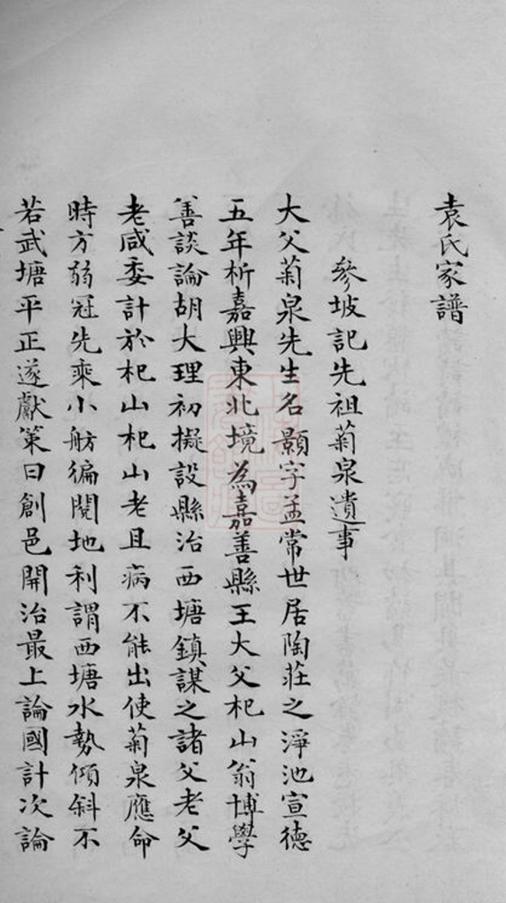 袁氏家譜
參坡記先祖菊泉遺事
大父菊泉先生名顥字孟常世居陶莊之淨池宣德
五年析嘉興東北境為嘉善縣王大父杞山翁博學
善談論胡大理初擬設縣治西塘鎮謀之諸父老父
老咸委計於杞山杞山老且病不能出使菊泉應命
時方弱冠先乘小舫徧閱地利謂西塘水勢傾斜不
若武塘平正遂獻策曰創邑開治最上論國計次論